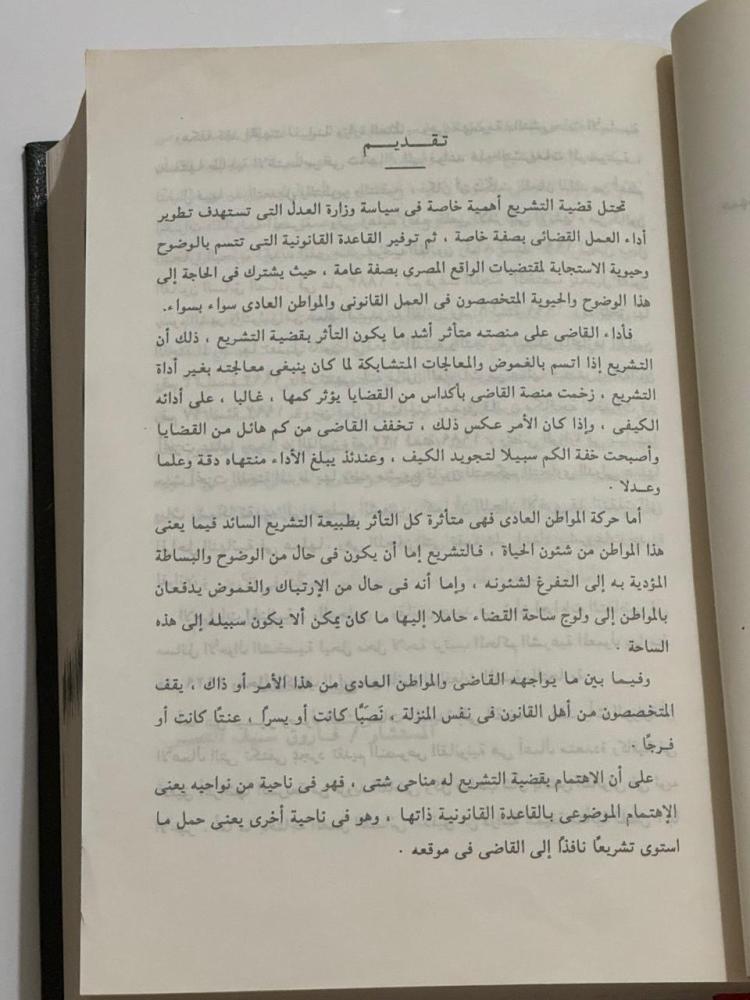 تقديم
تحتل قضية التشريع أهمية خاصة فى سياسة وزارة العدل التى تستهدف تطوير
أداء العمل القضائى بصفة خاصة ، ثم توفير القاعدة القانونية التى تتسم بالوضوح
وحيوية الاستجابة لمقتضيات الواقع المصرى بصفة عامة ، حيث يشترك فى الحاجة إلى
هذا الوضوح والحيوية المتخصصون فى العمل القانونى والمواطن العادى سواء بسواء.
فأداء القاضى على منصته متأثر أشد ما يكون التأثر بقضية التشريع ، ذلك أن
التشريع إذا اتسم بالغموض والمعالجات المتشابكة لما كان ينبغى معالجته بغير أداة
التشريع ، زخمت منصة القاضى بأكداس من القضايا يؤثر كمها ، غالبا ، على أدائه
الكيفى ، وإذا كان الأمر عكس ذلك ، تخفف القاضى من كم هائل من القضايا
وأصبحت خفة الكم سبيلا لتجويد الكيف ، وعندئذ يبلغ الأداء منتهاه دقة وعلما
وعدلا .
أما حركة المواطن العادى فهى متأثرة كل التأثر بطبيعة التشريع السائد فيما يعنى
هذا المواطن من شئون الحياة ، فالتشريع إما أن يكون فى حال من الوضوح والبساطة
المؤدية به إلى التفرغ لشئونه ، وإما أنه فى حال من الإرتباك والغموض يدفعان
بالمواطن إلى ولوج ساحة القضاء حاملا إليها ما كان يمكن ألا يكون سبيله إلى هذه
الساحة .
وفيما بين ما يواجهه القاضى والمواطن العادى من هذا الأمر أو ذاك ، يقف
المتخصصون من أهل القانون فى نفس المنزلة ، نَصَبًا كانت أو يسراً ، عنتًا كانت أو
فرجًا .
على أن الاهتمام بقضية التشريع له مناحى شتى ، فهو فى ناحية من نواحيه يعنى
الإهتمام الموضوعى بالقاعدة القانونية ذاتها ، وهو فى ناحية أخرى يعنى حمل ما
استوى تشريعًا نافذًا إلى القاضى فى موقعه .